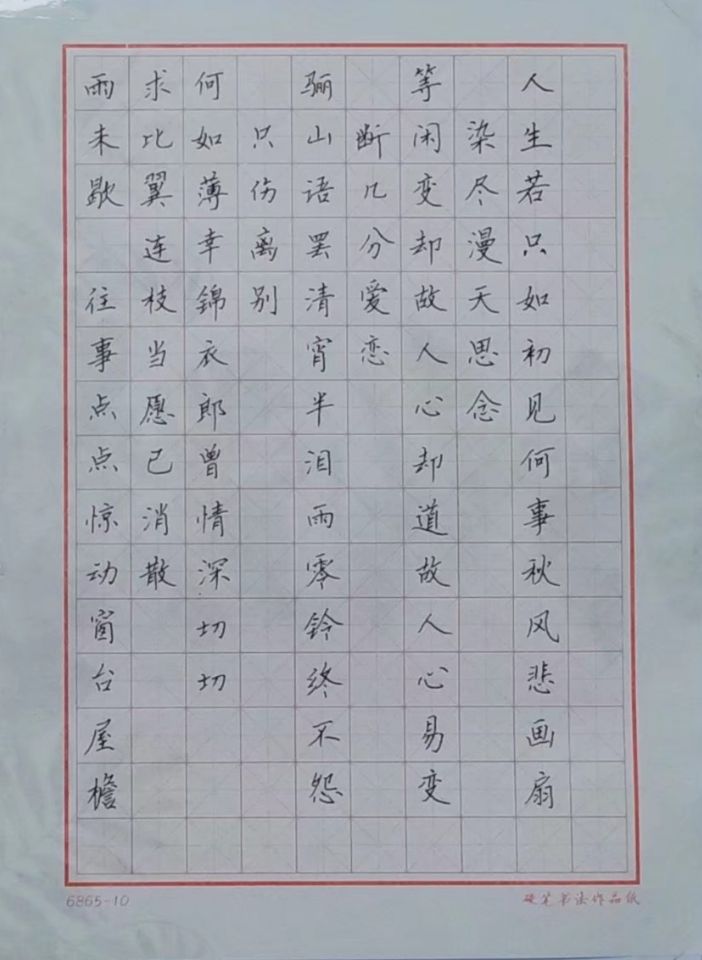 人生若只如初见何事秋风悲画扇
染尽漫天思念
等闲变却故人心却道故人心易变
断几分爱恋
骊山语罢清宵半泪雨零铃终不怨
只伤离别
何如薄幸錦衣郎曾情深切切
求比翼连枝当愿已消散
雨未歇 往事点点惊动窗台屋檐
6865-10
硬笔书法作品纸